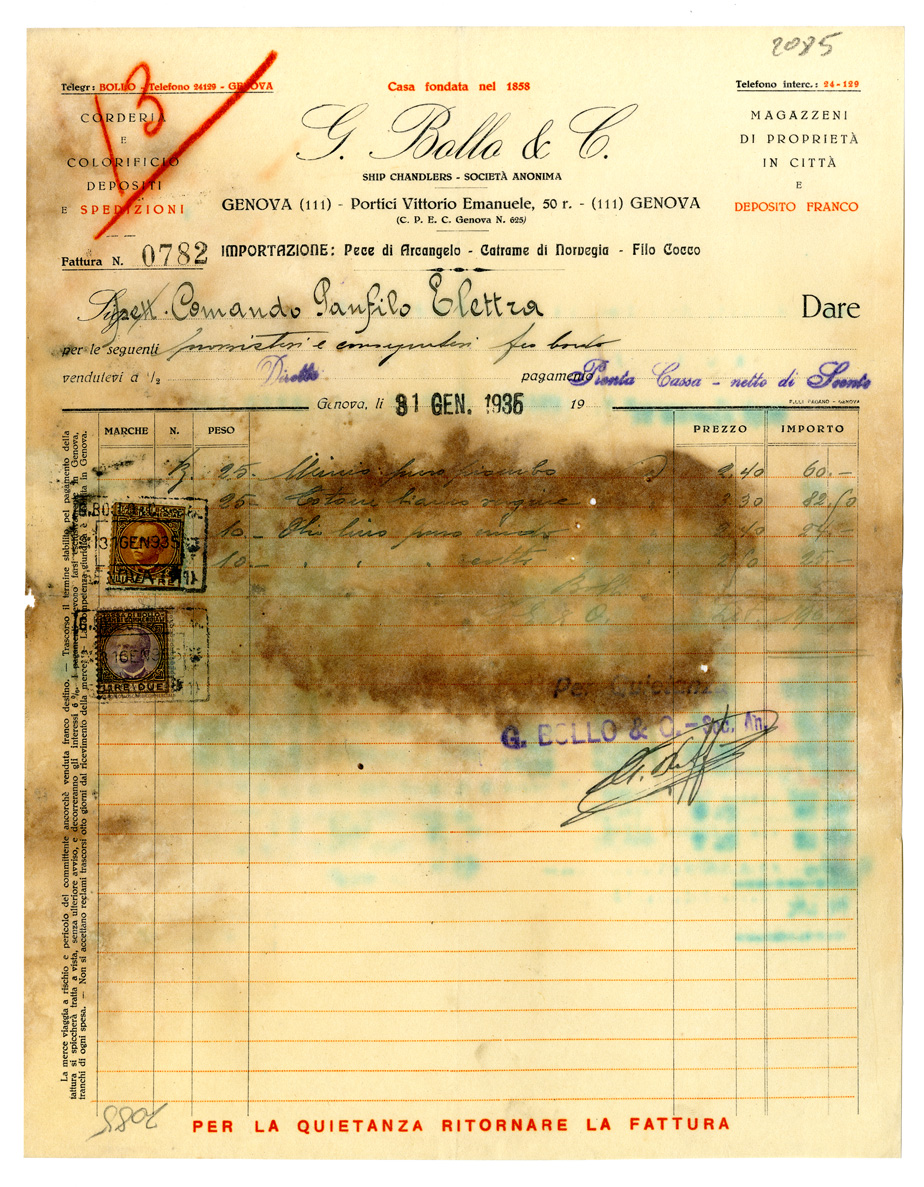 2085
13
Telegr: BOLLO - Telefono 24129 - GENOVA
Casa fondata nel 1858
Telefono interc.: 24-129
CORDERIA
E
COLORIFICIO
DEPOSITI
E SPEDIZIONI
G. Bollo & C.
SHIP CHANDLERS - SOCIETÀ ANONIMA
GENOVA (111) - Portici Vittorio Emanuele, 50 r. - (111) GENOVA
(C. P. E. C. Genova N. 625)
MAGAZZENI
DI PROPRIETÀ
IN CITTÀ
E
DEPOSITO FRANCO
Fattura N. 0782
IMPORTAZIONE: Pece di Arcangelo - Catrame di Norvegia - Filo Cocco
Comando Panfilo Elettra
Dare
per le seguenti provvisteri e consegnateri fco bordo
vendutevi a 1/2 Dirette pagamento Pronta Cassa - netto di Sconto
Genova, li 31 GEN. 1935 19
F.LLI PAGANO - GENOVA
MARCHE N. PESO PREZZO IMPORTO
25.- Minio puro piombo 2.40 60.-
25.- 82.50
10.- Olio lino puro crudo 2.40 24.-
10.- " " cotto 25.-
31 GEN 935
LIRE TRE
LIRE DUE
Per Quietanza
G. BOLLO & C. - Soc. An.
La merce viaggia a rischio e pericolo del committente ancorchè venduta franco destino. — Trascorso il termine stabilito pel pagamento della
fattura si spiccherà tratta a vista, senza ulteriore avviso, e decorreranno gli interessi 6 %. I pagamenti devono farsi esclusivamente in Genova,
franchi di ogni spesa. — Non si accettano reclami trascorsi otto giorni dal ricevimento della merce. La competenza giuridica è stabilita in Genova.
2085
PER LA QUIETANZA RITORNARE LA FATTURA